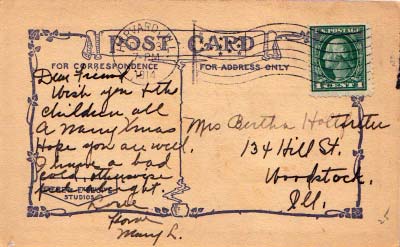 POST CARD
FOR CORRESPONDENCE
FOR ADDRESS ONLY
HARVARD
7 PM
1914
U.S. POSTAGE
1 CENT 1
Dear Friend
Wish you & the
children all
A Merry Xmas
Hope you are well.
I have a bad
cold, otherwise
STUDIOS
Love
from
Mary L.
Mrs Bertha
134 Hill St.
Woodstock,
Ill.